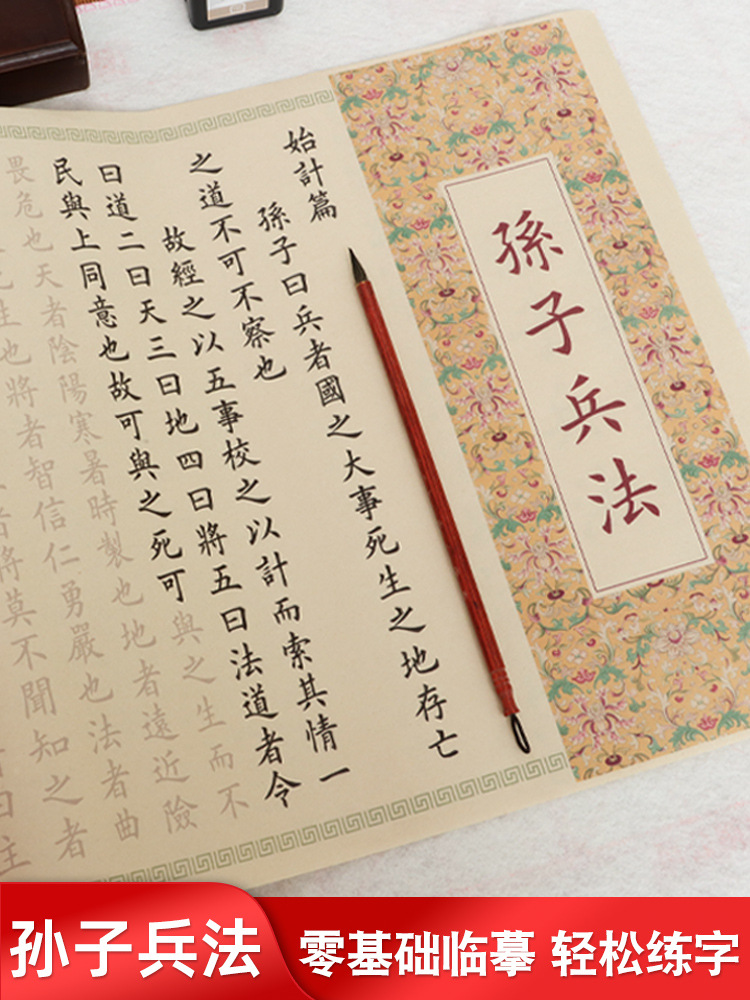 孫子兵法
始計篇
孫子曰兵者國之大事死生之地存亡
之道不可不察也
故經之以五事校之以計而索其情一
曰道二曰天三曰地四曰將五曰法道者令
民與上同意也故可與之死可與之生而不
畏危也天者陰陽寒暑時製也地者遠近險
生也將者智信仁勇嚴也法者曲
者將莫不聞知之者
曰主
孙子兵法
零基础临摹 轻松练字